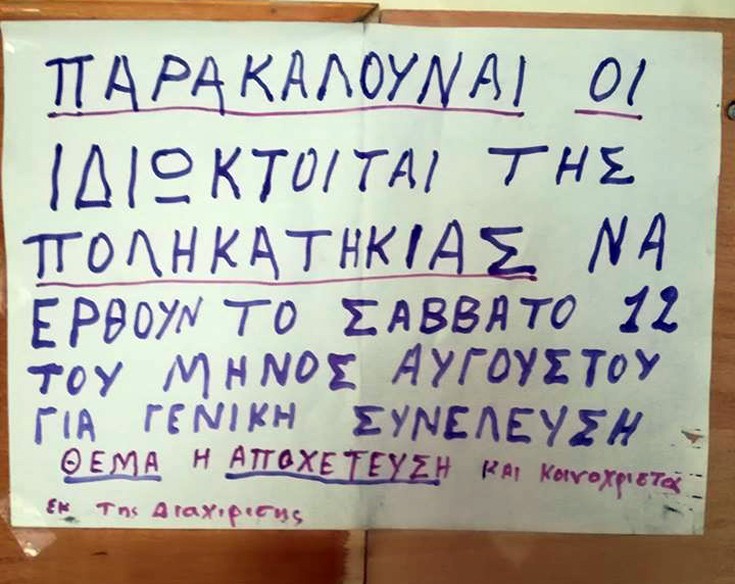 ΠΑΡΑΚΑΛΟΥΝΑΙ ΟΙ
ΙΔΙΩΚΤΟΙΤΑΙ ΤΗΣ
ΠΟΛΗΚΑΤΗΚΙΑΣ ΝΑ
ΕΡΘΟΥΝ ΤΟ ΣΑΒΒΑΤΟ 12
ΤΟΥ ΜΗΝΟΣ ΑΥΓΟΥΣΤΟΥ
ΓΙΑ ΓΕΝΙΚΗ ΣΥΝΕΛΕΥΣΗ
ΘΕΜΑ Η ΑΠΟΧΕΤΕΥΣΗ ΚΑΙ Κοινοχριστα
εκ Της Διαχιρισης